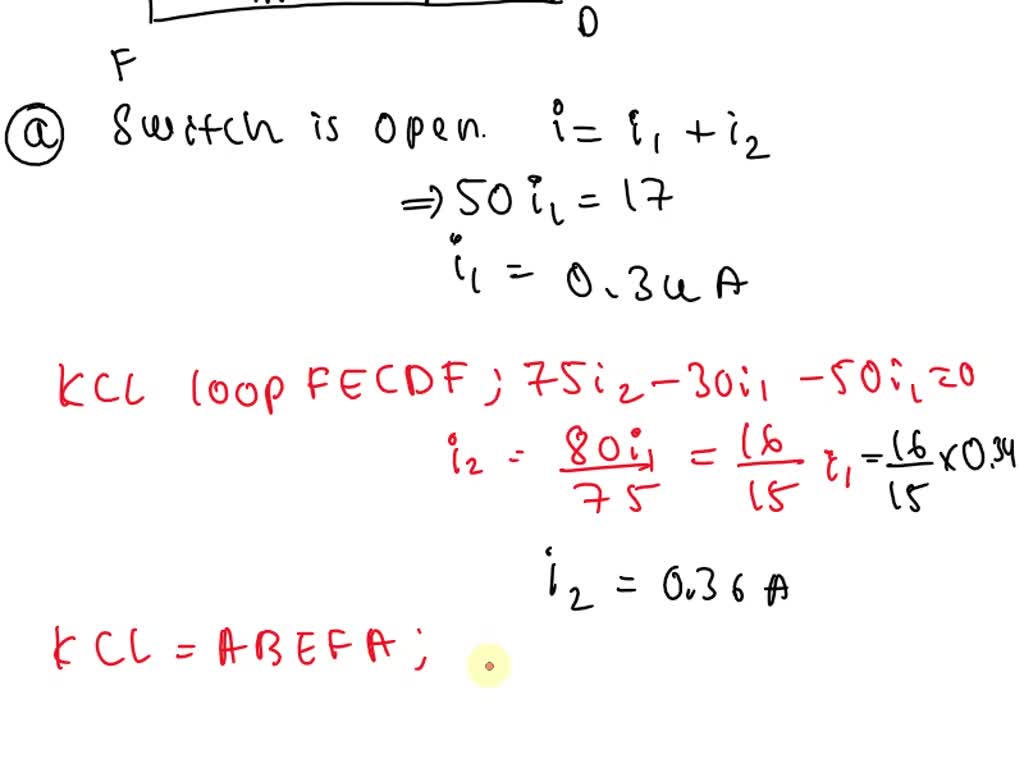 F D
ⓐ Switch is open. i = i₁ + i₂
⇒ 50 i₁ = 17
i₁ = 0.34 A
KCL loop FECDF; 75i₂ - 30i₁ - 50i₁ = 0
i₂ = 80i₁/75 = 16/15 i₁ = 16/15 × 0.34
i₂ = 0.36 A
KCL = ABEFA;